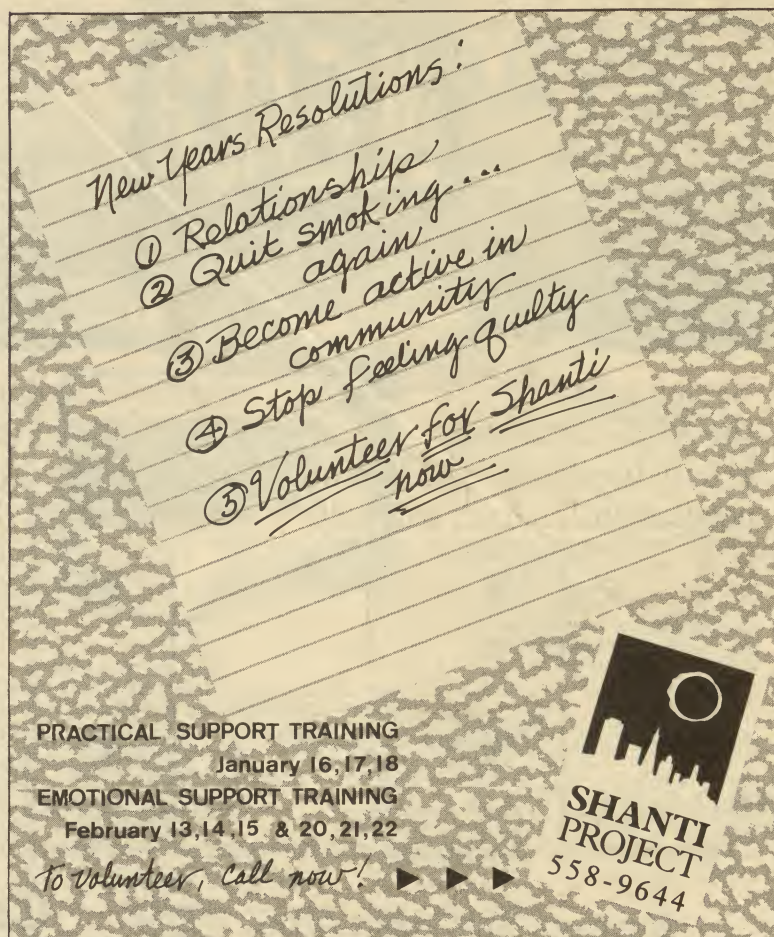 New Years Resolutions:
① Relationship
② Quit smoking...
again
③ Become active in
community
④ Stop feeling guilty
⑤ Volunteer for Shanti
now
PRACTICAL SUPPORT TRAINING
January 16,17,18
EMOTIONAL SUPPORT TRAINING
February 13,14,15 & 20,21,22
To volunteer, call now!
SHANTI
PROJECT
558-9644